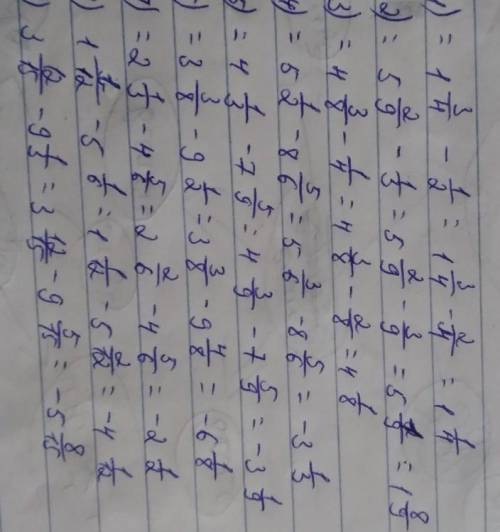 1) = 1 3/4 - 1/2 = 1 3/4 - 2/4 = 1 1/4
2) = 5 2/9 - 1/3 = 5 2/9 - 3/9 = 5 1/9 = 1 8/9
3) = 4 3/8 - 1/4 = 4 3/8 - 2/8 = 4 1/8
4) = 5 1/2 - 8 5/6 = 5 3/6 - 8 5/6 = -3 1/3
5) = 4 1/3 - 7 5/9 = 4 3/9 - 7 5/9 = -3 1/9
) = 3 3/8 - 9 1/2 = 3 3/8 - 9 4/8 = -6 1/8
7) = 2 1/3 - 4 5/6 = 2 2/6 - 4 5/6 = -2 1/2
) 1 1/12 - 5 1/6 = 1 1/12 - 5 2/12 = -4 1/12
) 3 12/15 - 9 1/3 = 3 12/15 - 9 5/15 = -5 8/15